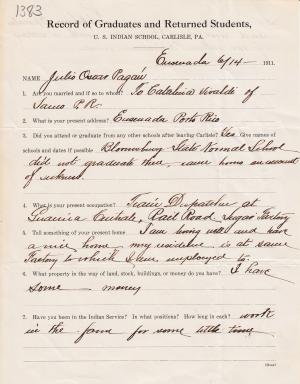 1383
Record of Graduates and Returned Students,
U. S. INDIAN SCHOOL, CARLISLE, PA.
Ensenada 6/14 - 1911.
NAME Julio Osoro Pagán
1. Are you married and if so to whom? To Catalina Uvaldi of
Yauco P.R.
2. What is your present address? Ensenada Porto Rico
3. Did you attend or graduate from any other schools after leaving Carlisle? Yes. Give names of
schools and dates if possible Bloomsburg State Normal School
did not graduate there, came home on account
of sickness.
4. What is your present occupation? Train Dispatcher at
Guanica Centrale, Rail Road, Sugar Factory
5. Tell something of your present home. I am living well and have
a nice home my residence is at same
Factory to which I am employed to.
6. What property in the way of land, stock, buildings, or money do you have? I have
some money
7. Have you been in the Indian Service? In what positions? How long in each? work
in the farm for some little time.